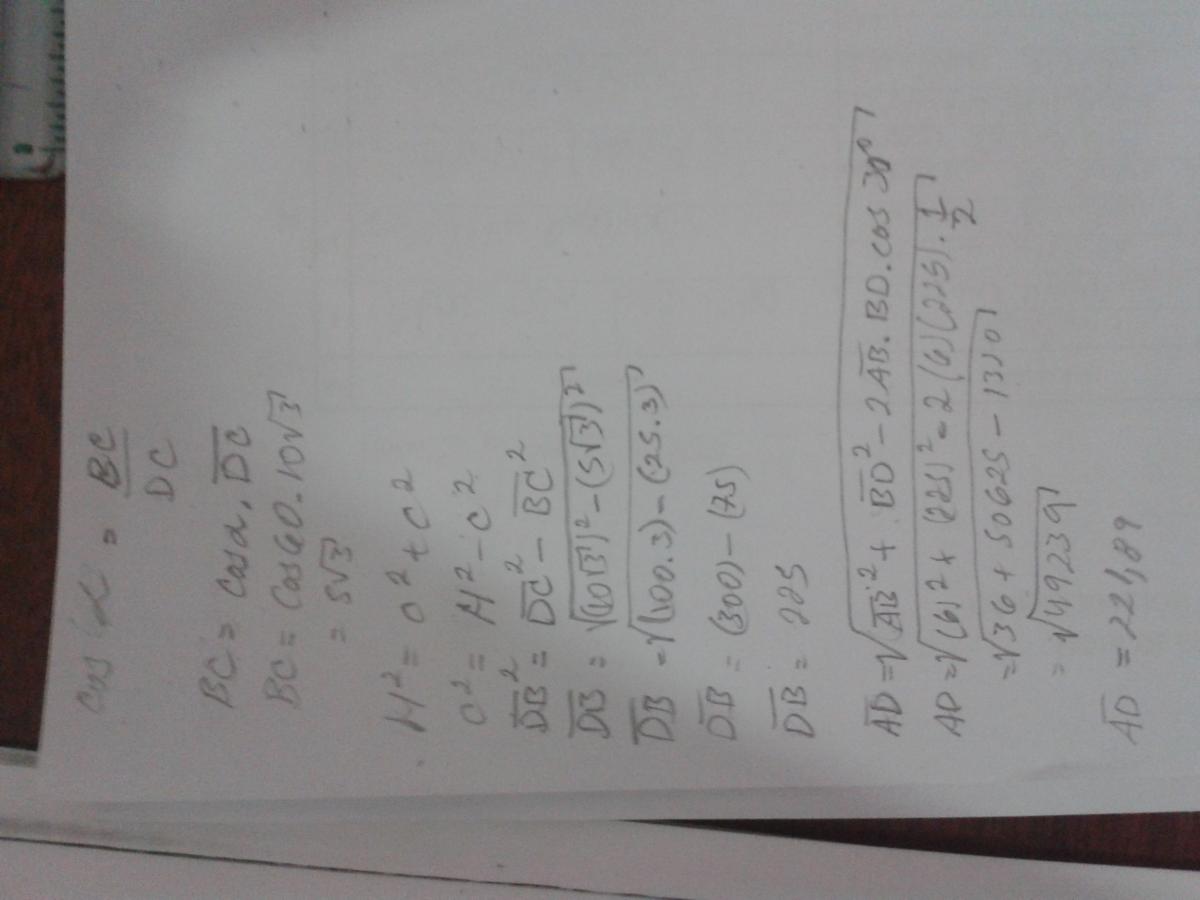 cos α = BC/DC
BC = cosα. DC̅
BC = Cos60.10√3
= 5√3
H² = O² + C²
O² = H² - C²
D̅B̅² = D̅C̅² - B̅C̅²
D̅B̅ = √(10√3)² - (5√3)²
D̅B̅ = √(100.3) - (25.3)
D̅B̅ = (300) - (75)
D̅B̅ = 225
A̅D̅ = √A̅B̅² + B̅D̅² - 2A̅B̅. BD. cos 30°
AD = √(6)² + (225)² - 2 (6) (225) . 1/2
= √36 + 50625 - 1320
= √49239
A̅D̅ = 221,89